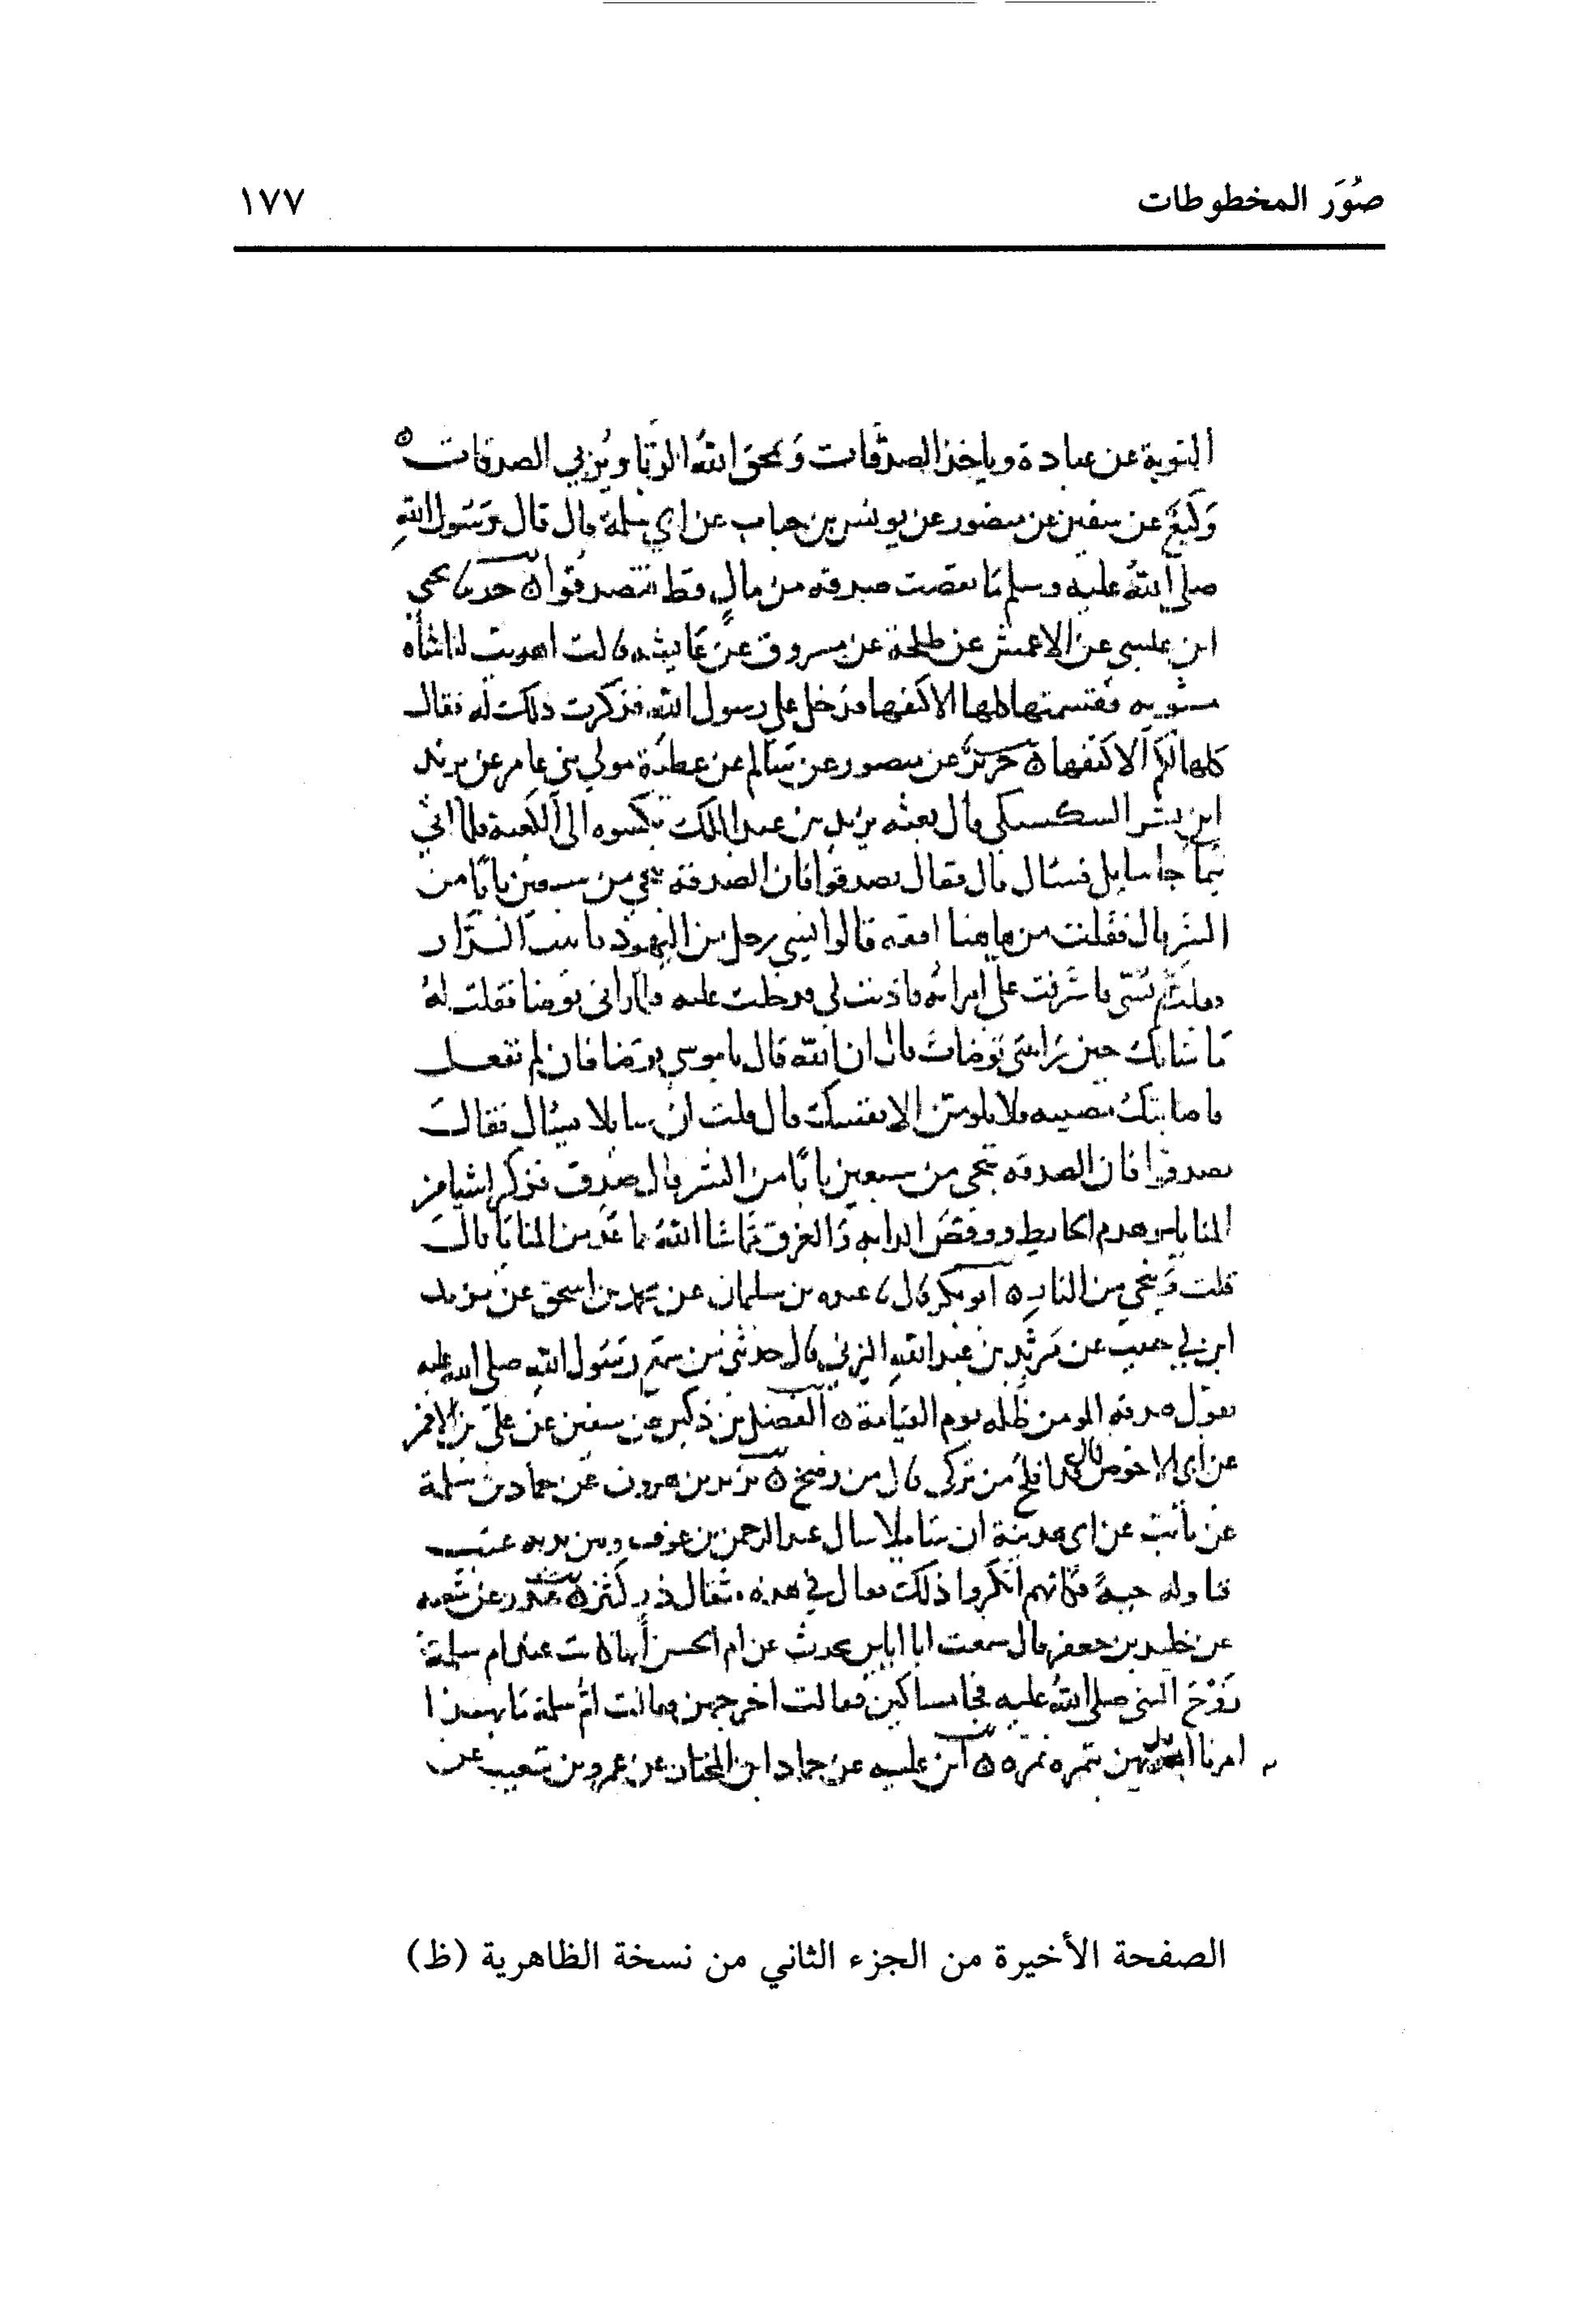 صُوَر المخطوطات
١٧٧
التوبة عن عباده وياخذ الصدقات وَيمحق اللهُ الربا ويُربي الصدقات ه
وَكيع عن سفين عن منصور عن يونس بن خباب عن ابي سلمة قال قال رسُول اللهِ
صلى اللهُ عليه وسلم مَا نقصت صدقه من مالٍ قط فتصدقوا ه حدثنا يحيي
ابن عيسي عن الاعمش عن طلحة عن مسروق عن عَايشه قالت اهديت لنا شاه
مشويه فقسمتها كلها الا كتفها فدخل علي رسول الله فذكرت ذلك له فقال
كلها لكم الا كتفها ه جرير عن منصور عن سَالم عن عطية مولي بني عامر عن يزيد
ابن بشر السكسكي قال بعثه يزيد بن عبد الملك بكسوه الى الكعبة فلما اتي
تيما جا سايل فسال قال فقال تصدقوا فان الصدقة تنجي من سبعين بابًا من
الشر قال فقلت من هاهنا افقه قالوا نسي رجل من اليهود
فاشرفت علي امراته فاذنت لي فدخلت عليه فلما راني توضا فقلت لهُ
مَا شانك حين رَايتني توضات قال ان الله قال يا موسي توضا فان لم تفعل
فاصابتك مصيبه فلا تلومن الا نفسك قال قلت ان سايلا سال فقال
تصدقوا فان الصدقه تنجي من سبعين بابًا من الشر قال صدق فذكر اشيا من
المنايا هدم الحايط ووقص الدابه وَالغرق مما شا اللهُ مما عَدّ من المنايا قال
قلت وَينجي من النار ه ابو بكر قال نا عبده بن سليمان عن محمد بن اسحق عن يزيد
ابن ابي حبيب عن مَرثد بن عَبد الله اليزني قال حدثني من سمع رسُول اللهِ صلى الله عليه
يقول صدقه المومن ظله يوم القيامة ه الفضل بن دكين عن سفين عن علي بن الاقمر
عن ابي الاحوص قال قد افلح من تزكى قال من رضخ ه يزيد بن هرون عَن حماد بن سَلمة
عن ثابت عن ابي مدينة ان سَايلا سال عبد الرحمن بن عوف وبين يديه عنب
فناوله حبة فكانهم انكروا ذلك فقال في هذه مثقال ذر كثير ه غندر عن شعبه
عن خليد بن جعفر قال سمعت ابا اياس يحدث عن ام الحسن انها كانت عند ام سلمة
زَوْج النبي صلى اللهُ عليه فجا مساكين فقالت اخرجهن فقالت امُّ سلمة مَا بهذا
امرنا ابدّيهن بتمره تمره ه ابن عليه عن حماد ابن المختار عن عمرو بن شعيب عن
الصفحة الأخيرة من الجزء الثاني من نسخة الظاهرية (ظ)